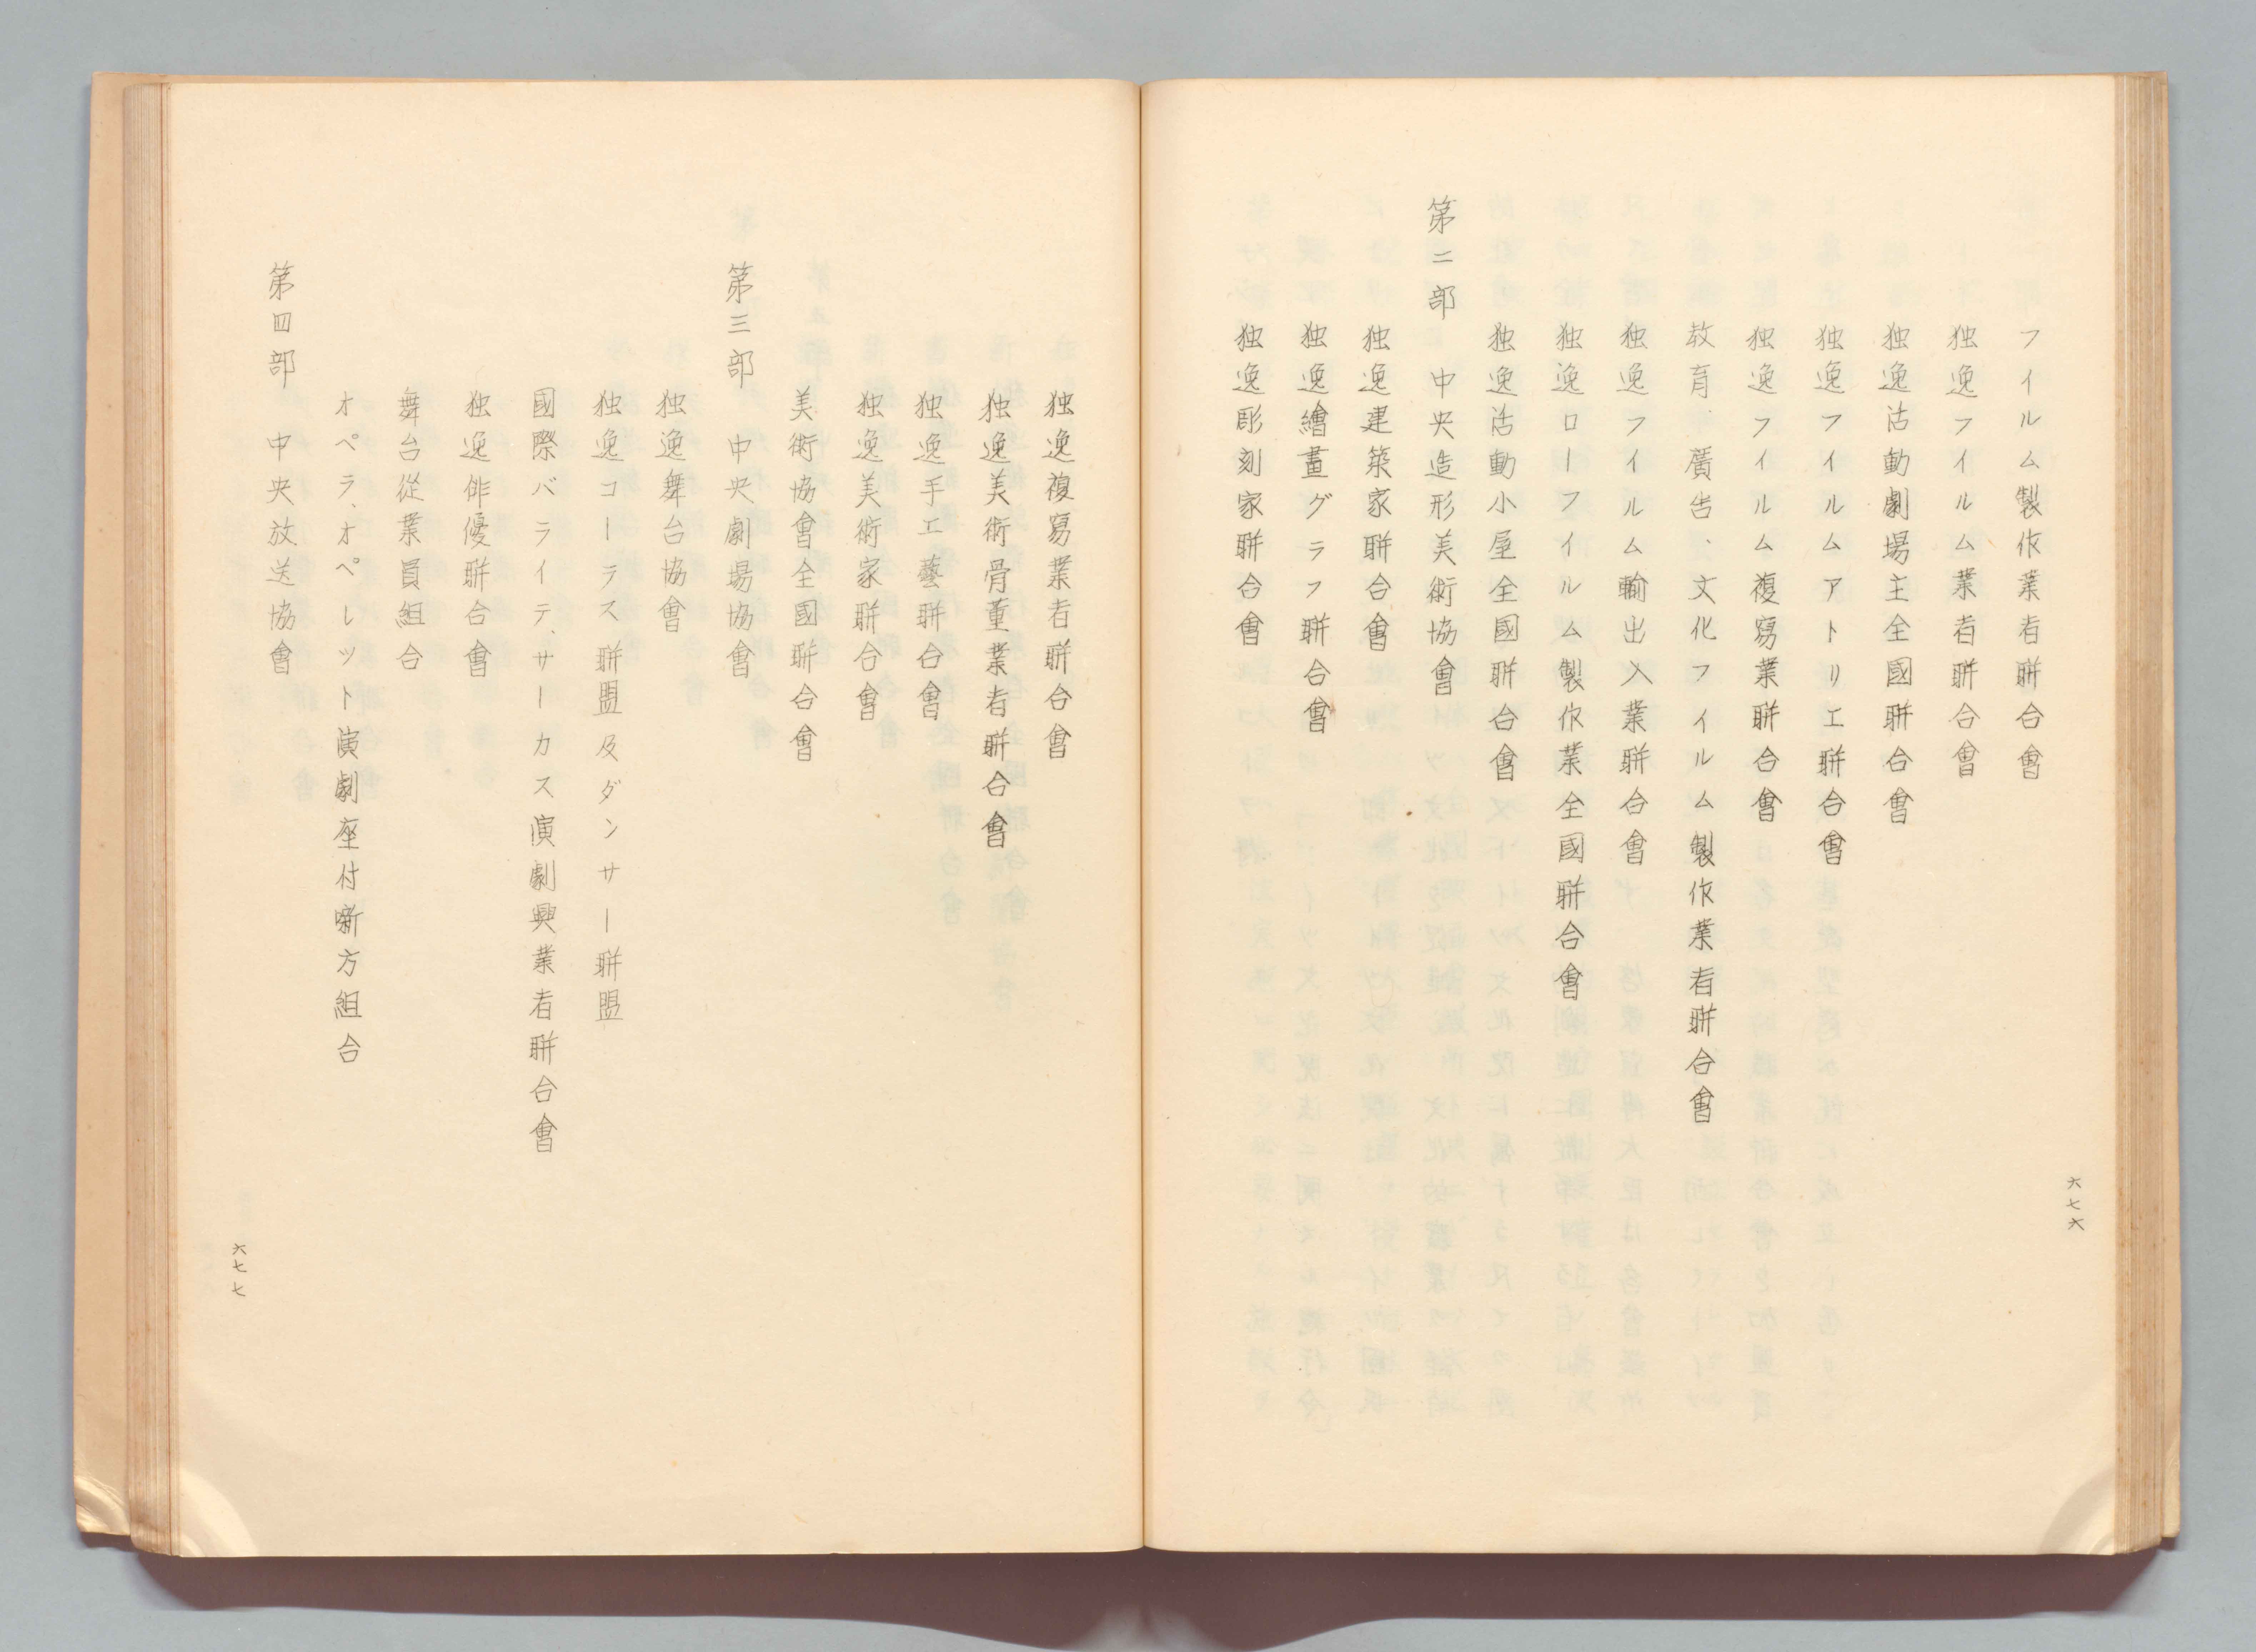 フイルム製作業者聨合會
独逸フイルム業者聨合會
独逸活動劇場主全國聨合會
独逸フイルムアトリエ聨合會
独逸フイルム複寫業聨合會
教育、廣告、文化フイルム製作業者聨合會
独逸フイルム輸出入業聨合會
独逸ローフイルム製作業全國聨合會
独逸活動小屋全國聨合會
第二部　中央造形美術協會
独逸建築家聨合會
独逸繪畫グラフ聨合會
独逸彫刻家聨合會
六七六
独逸複寫業者聨合會
独逸美術骨董業者聨合會
独逸手工藝聨合會
独逸美術家聨合會
美術協會全國聨合會
第三部　中央劇場協會
独逸舞台協會
独逸コーラス聨盟及ダンサー聨盟
國際バライテ、サーカス演劇興業者聨合會
独逸俳優聨合會
舞台從業員組合
オペラ、オペレツト演劇座付噺方組合
第四部　中央放送協會
六七七